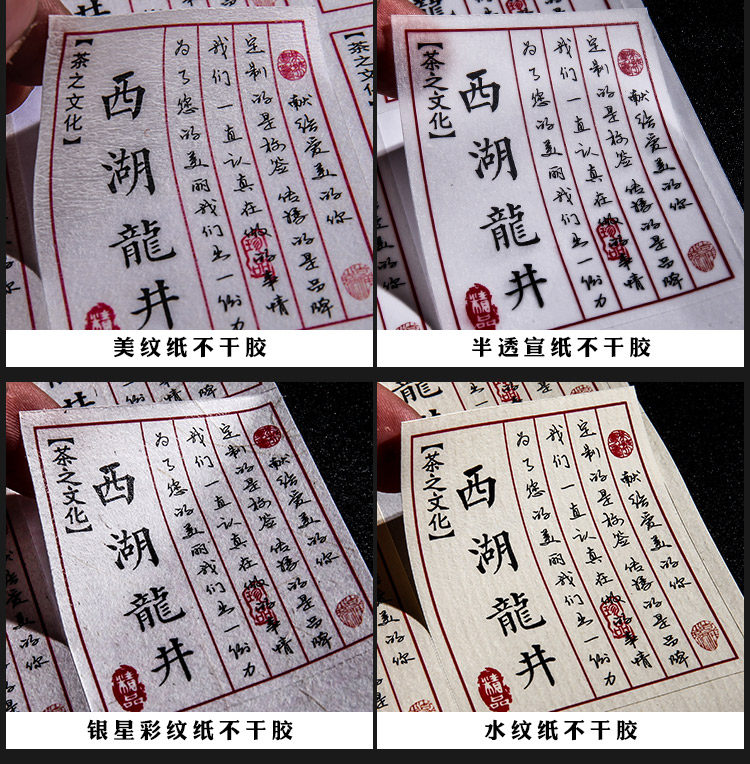 献给爱美的你
定制的是标签 传播的是品牌
我们一直认真在做的事情
为了您的美丽我们出一份力
西湖龍井
【茶之文化】
精品
美纹纸不干胶
献给爱美的你
定制的是标签 传播的是品牌
我们一直认真在做的事情
为了您的美丽我们出一份力
西湖龍井
【茶之文化】
精品
半透宣纸不干胶
献给爱美的你
定制的是标签 传播的是品牌
我们一直认真在做的事情
为了您的美丽我们出一份力
西湖龍井
【茶之文化】
精品
银星彩纹纸不干胶
献给爱美的你
定制的是标签 传播的是品牌
我们一直认真在做的事情
为了您的美丽我们出一份力
西湖龍井
【茶之文化】
精品
水纹纸不干胶